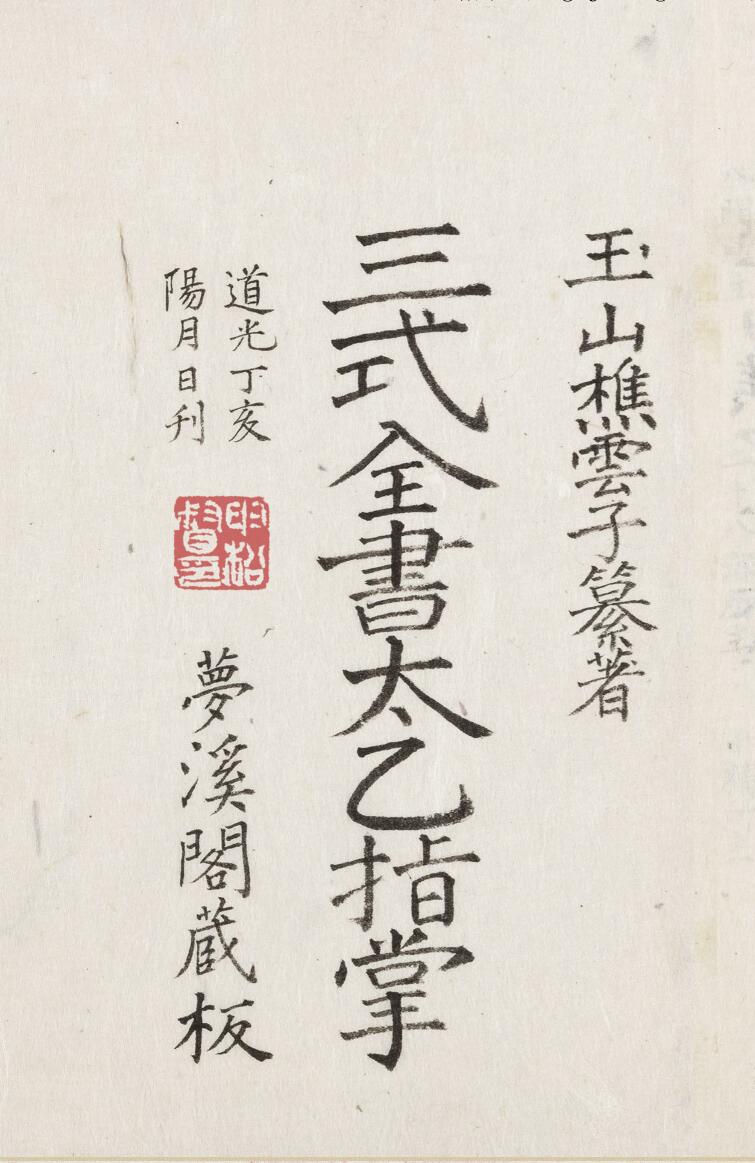 玉山樵雲子纂著
三式全書太乙指掌
道光丁亥
陽月日刊
夢溪閣蔵板